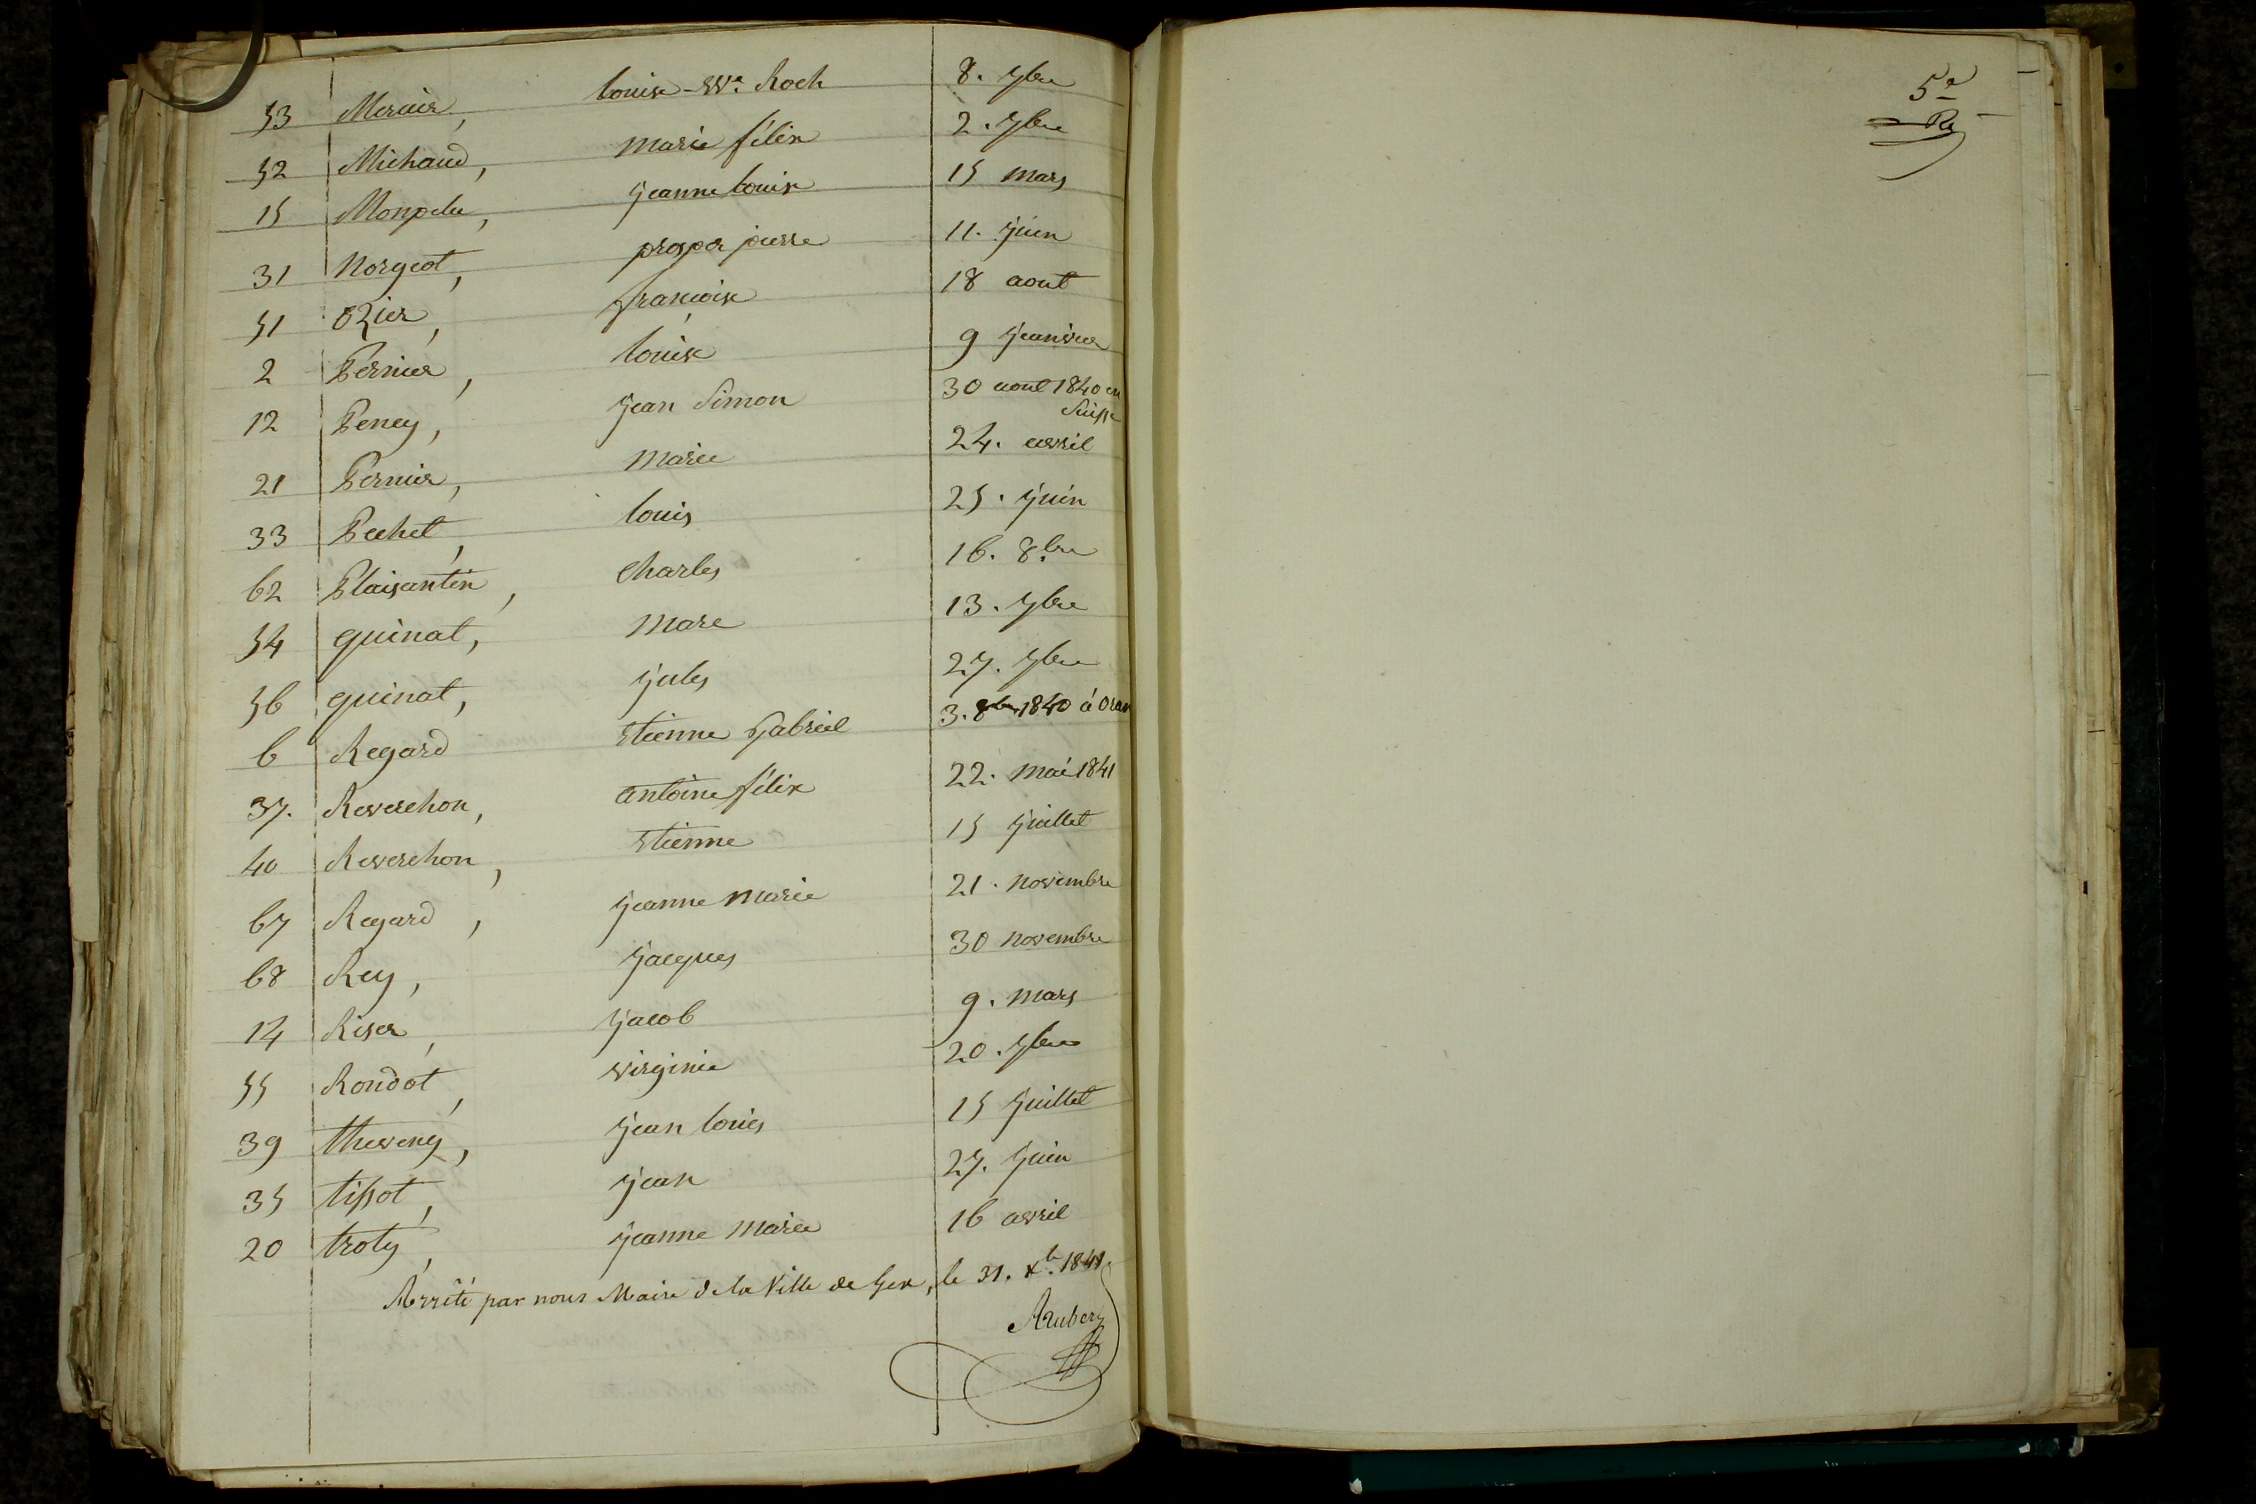 53 Mercier, louise - Ve. Roch 8. 7bre
52 Michaud, marie félix 2. 7bre
15 Monpela, jeanne louise 15 mars
31 Norgeot, prosper pierre 11. juin
51 ozier, françoise 18 aout
2 Pernier, louise 9 janvier
12 Peney, jean Simon 30 aout 1840 en Suisse
21 Pernier, marie 24. avril
33 Pechet, louis 25. juin
62 Plaisantin, charles 16. 8.bre
54 quinat, marc 13. 7bre
56 quinat, jules 27. 7bre
6 Regard Etienne gabriel 3. 8bre 1840 à Oran
37. Reverchon, antoine félix 22. mai 1841
40 Reverchon, Etienne 15 juillet
67 Regard, jeanne marie 21. novembre
68 Rey, jacques 30 novembre
14 Riser, jacob 9. mars
55 Rondot, virginie 20. 7bre
39 theveny, jean louis 15 juillet
35 tissot, jean 27. juin
20 troty, jeanne marie 16 avril
Arrêté par nous Maire de la Ville de Gex, le 31. Xb. 1841.
5e